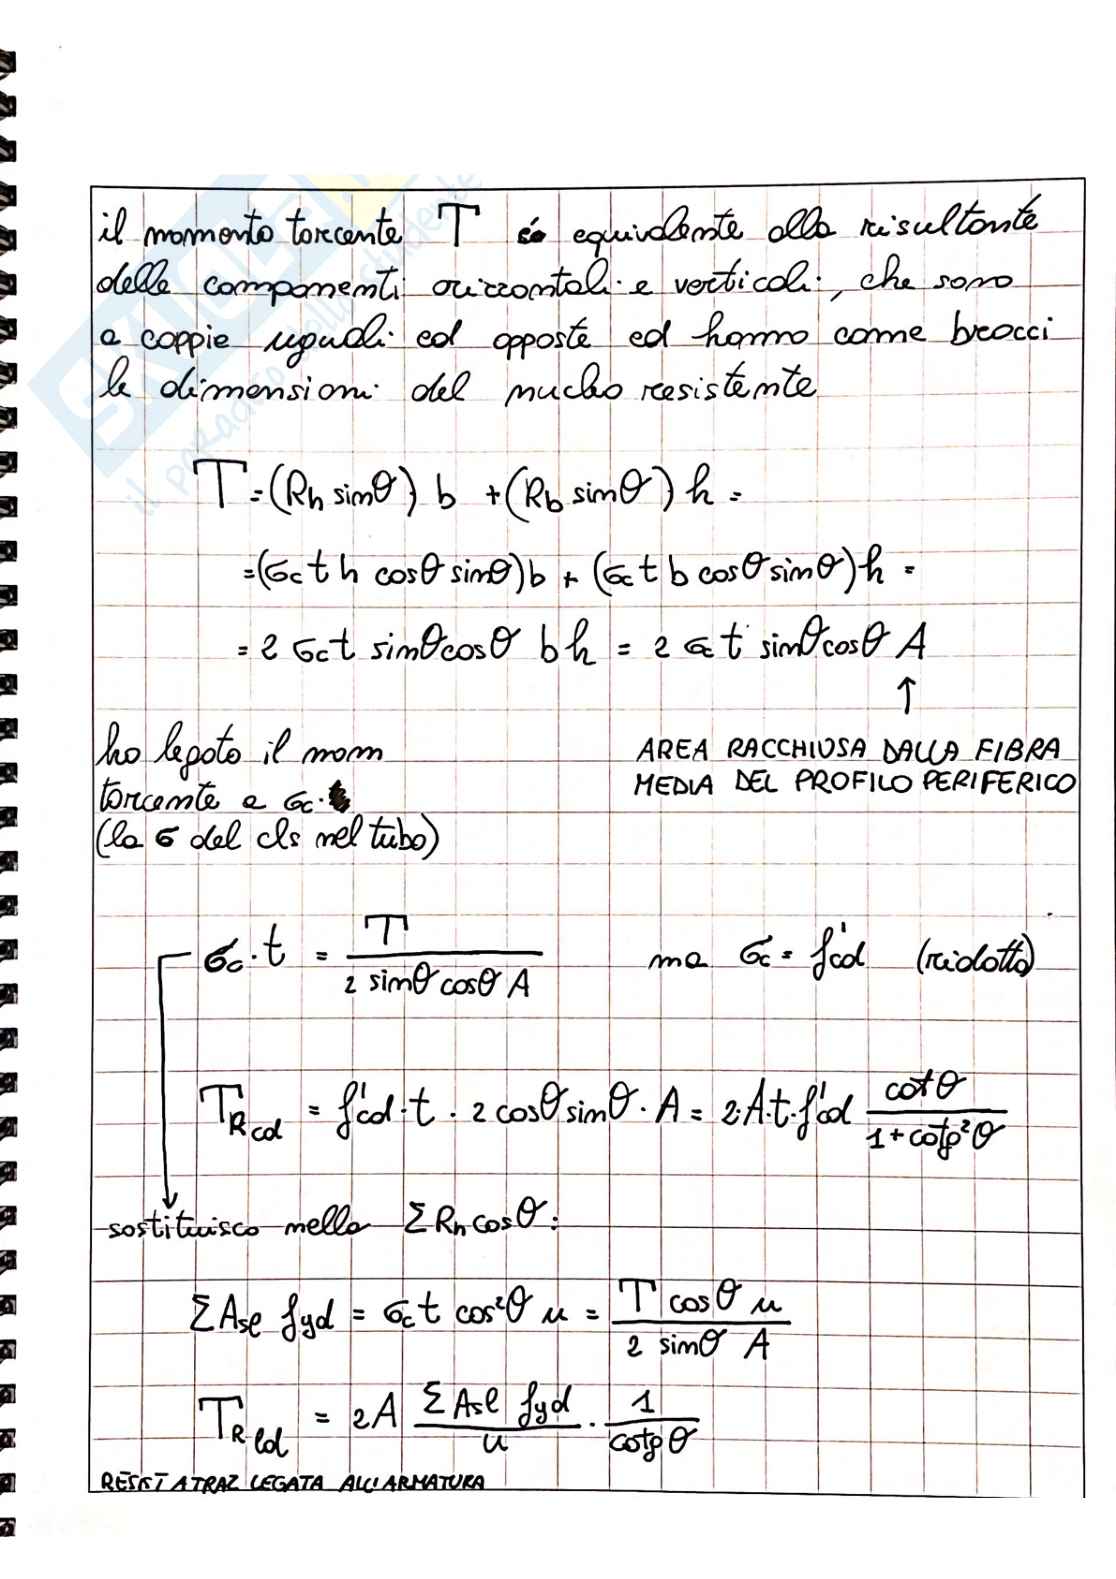 il momento torcente T è equivalente alla risultante
delle componenti orizzontali e verticali, che sono
a coppie uguali ed opposte ed hanno come bracci
le dimensioni del nucleo resistente
T = (Rh sinθ) b + (Rb sinθ) h =
= (σc t h cosθ sinθ) b + (σc t b cosθ sinθ) h =
= 2 σc t sinθ cosθ b h = 2 σc t sinθ cosθ A
↑
AREA RACCHIUSA DALLA FIBRA
MEDIA DEL PROFILO PERIFERICO
ho legato il mom
torcente a σc.
(la σ del cls nel tubo)
σc · t = T / (2 sinθ cosθ A) ma σc = f'cd (ridotta)
TRcd = f'cd · t · 2 cosθ sinθ · A = 2·A·t·f'cd cotθ / (1 + cotg²θ)
sostituisco nella Σ Rh cosθ :
Σ Asl fyd = σc t cos²θ u = T cosθ u / (2 sinθ A)
TRld = 2A Σ Asl fyd / u · 1 / cotgθ
RESIST A TRAZ LEGATA ALL'ARMATURA